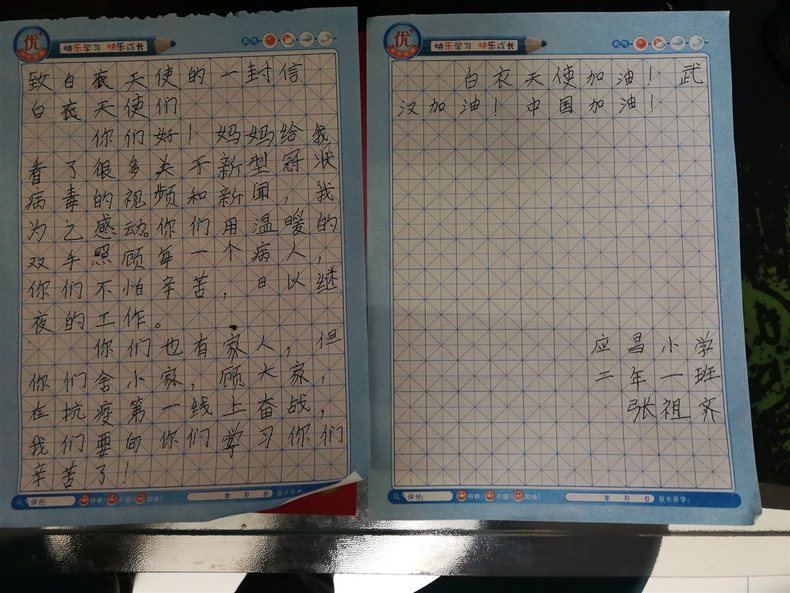 优
快乐学习 快乐成长
天气
致白衣天使的一封信
白衣天使们
你们好！妈妈给我
看了很多关于新型冠状
病毒的视频和新闻，我
为之感动。你们用温暖的
双手照顾每一个病人，
你们不怕辛苦，日以继
夜的工作。
你们也有家人，但
你们舍小家，顾大家，
在抗疫第一线上奋战，
我们要向你们学习你们
辛苦了！
评分：
好棒！
不错！
加油！
年 月 日
家长签字：
优
快乐学习 快乐成长
天气
白衣天使加油！武
汉加油！中国加油！
应昌小学
二年一班
张祖齐
评分：
好棒！
不错！
加油！
年 月 日
家长签字：